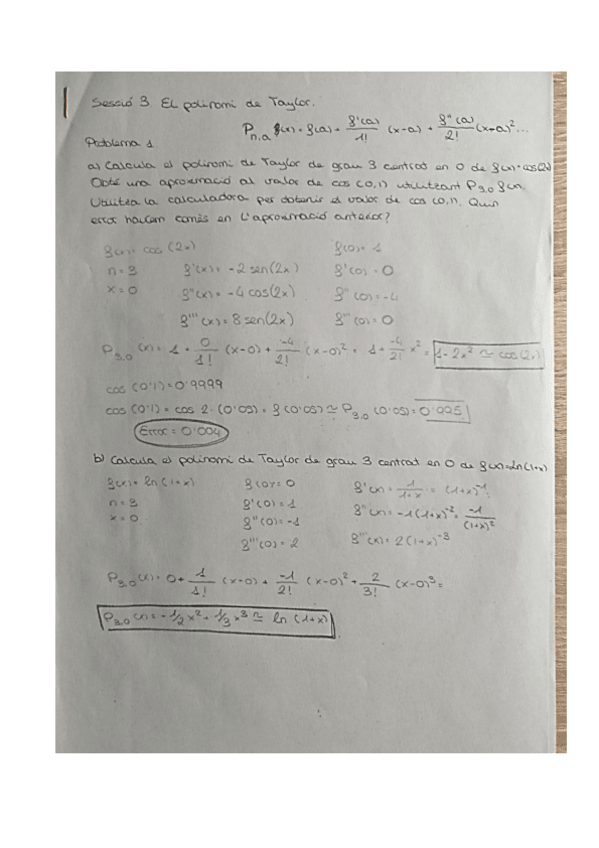 Sessió 3. El polinomi de Taylor.
P n,a f(x) = f(a) + f'(a)/1! (x-a) + f''(a)/2! (x-a)² ...
Problema 1
a) Calcula el polinomi de Taylor de grau 3 centrat en 0 de f(x) = cos(2x)
Obté una aproximació al valor de cos (0,1) utilitzant P3,0 f(x).
Utilitza la calculadora per obtenir el valor de cos (0,1). Quin
error hauríem comès en l'aproximació anterior?
f(x) = cos (2x) f(0) = 1
n = 3 f'(x) = -2 sen(2x) f'(0) = 0
x = 0 f''(x) = -4 cos(2x) f''(0) = -4
f'''(x) = 8 sen(2x) f'''(0) = 0
P3,0 (x) = 1 + 0/1! (x-0) + -4/2! (x-0)² = 1 + -4/2! x² = 1 - 2x² ≃ cos(2x)
cos (0'1) = 0'9999
cos (0'1) = cos 2·(0'05) = f(0'05) ≃ P3,0 (0'05) = 0'995
Error = 0'004
b) Calcula el polinomi de Taylor de grau 3 centrat en 0 de f(x) = ln(1+x)
f(x) = ln(1+x) f(0) = 0 f'(x) = 1/1+x = (1+x)⁻¹
n = 3 f'(0) = 1 f''(x) = -1(1+x)⁻² = -1/(1+x)²
x = 0 f''(0) = -1
f'''(0) = 2 f'''(x) = 2(1+x)⁻³
P3,0 (x) = 0 + 1/1! (x-0) + -1/2! (x-0)² + 2/3! (x-0)³ =
P3,0 (x) = -1/2 x² + 1/3 x³ ≃ ln (1+x)